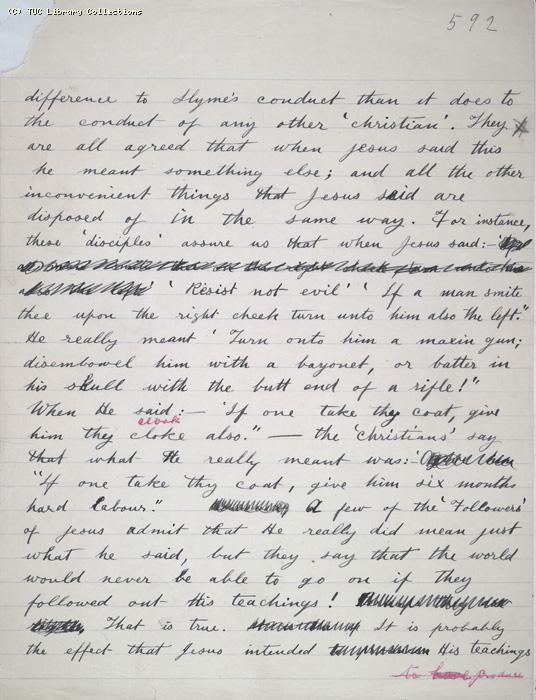 (C) TUC Library Collections
592
difference to Slyme's conduct than it does to
the conduct of any other 'christian'. They
are all agreed that when Jesus said this
he meant something else; and all the other
inconvenient things that Jesus said are
disposed of in the same way. For instance,
these 'disciples' assure us that when Jesus said:—
'Resist not evil' 'If a man smite
thee upon the right cheek turn unto him also the left."
He really meant 'Turn onto him a maxin gun;
disembowel him with a bayonet, or batter in
his skull with the butt end of a rifle!"
When He said:— 'If one take thy coat, give
cloak
him thy cloke also." — the 'christians' say
that what He really meant was:
"If one take thy coat, give him six months
hard labour." A few of the 'Followers'
of Jesus admit that He really did mean just
what he said, but they say that the world
would never be able to go on if they
followed out His teachings!
That is true. It is probably
the effect that Jesus intended His teachings
to produce